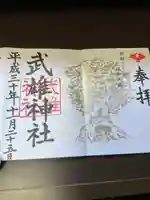 奉拝
武雄神社
平成三十年十月二十五日